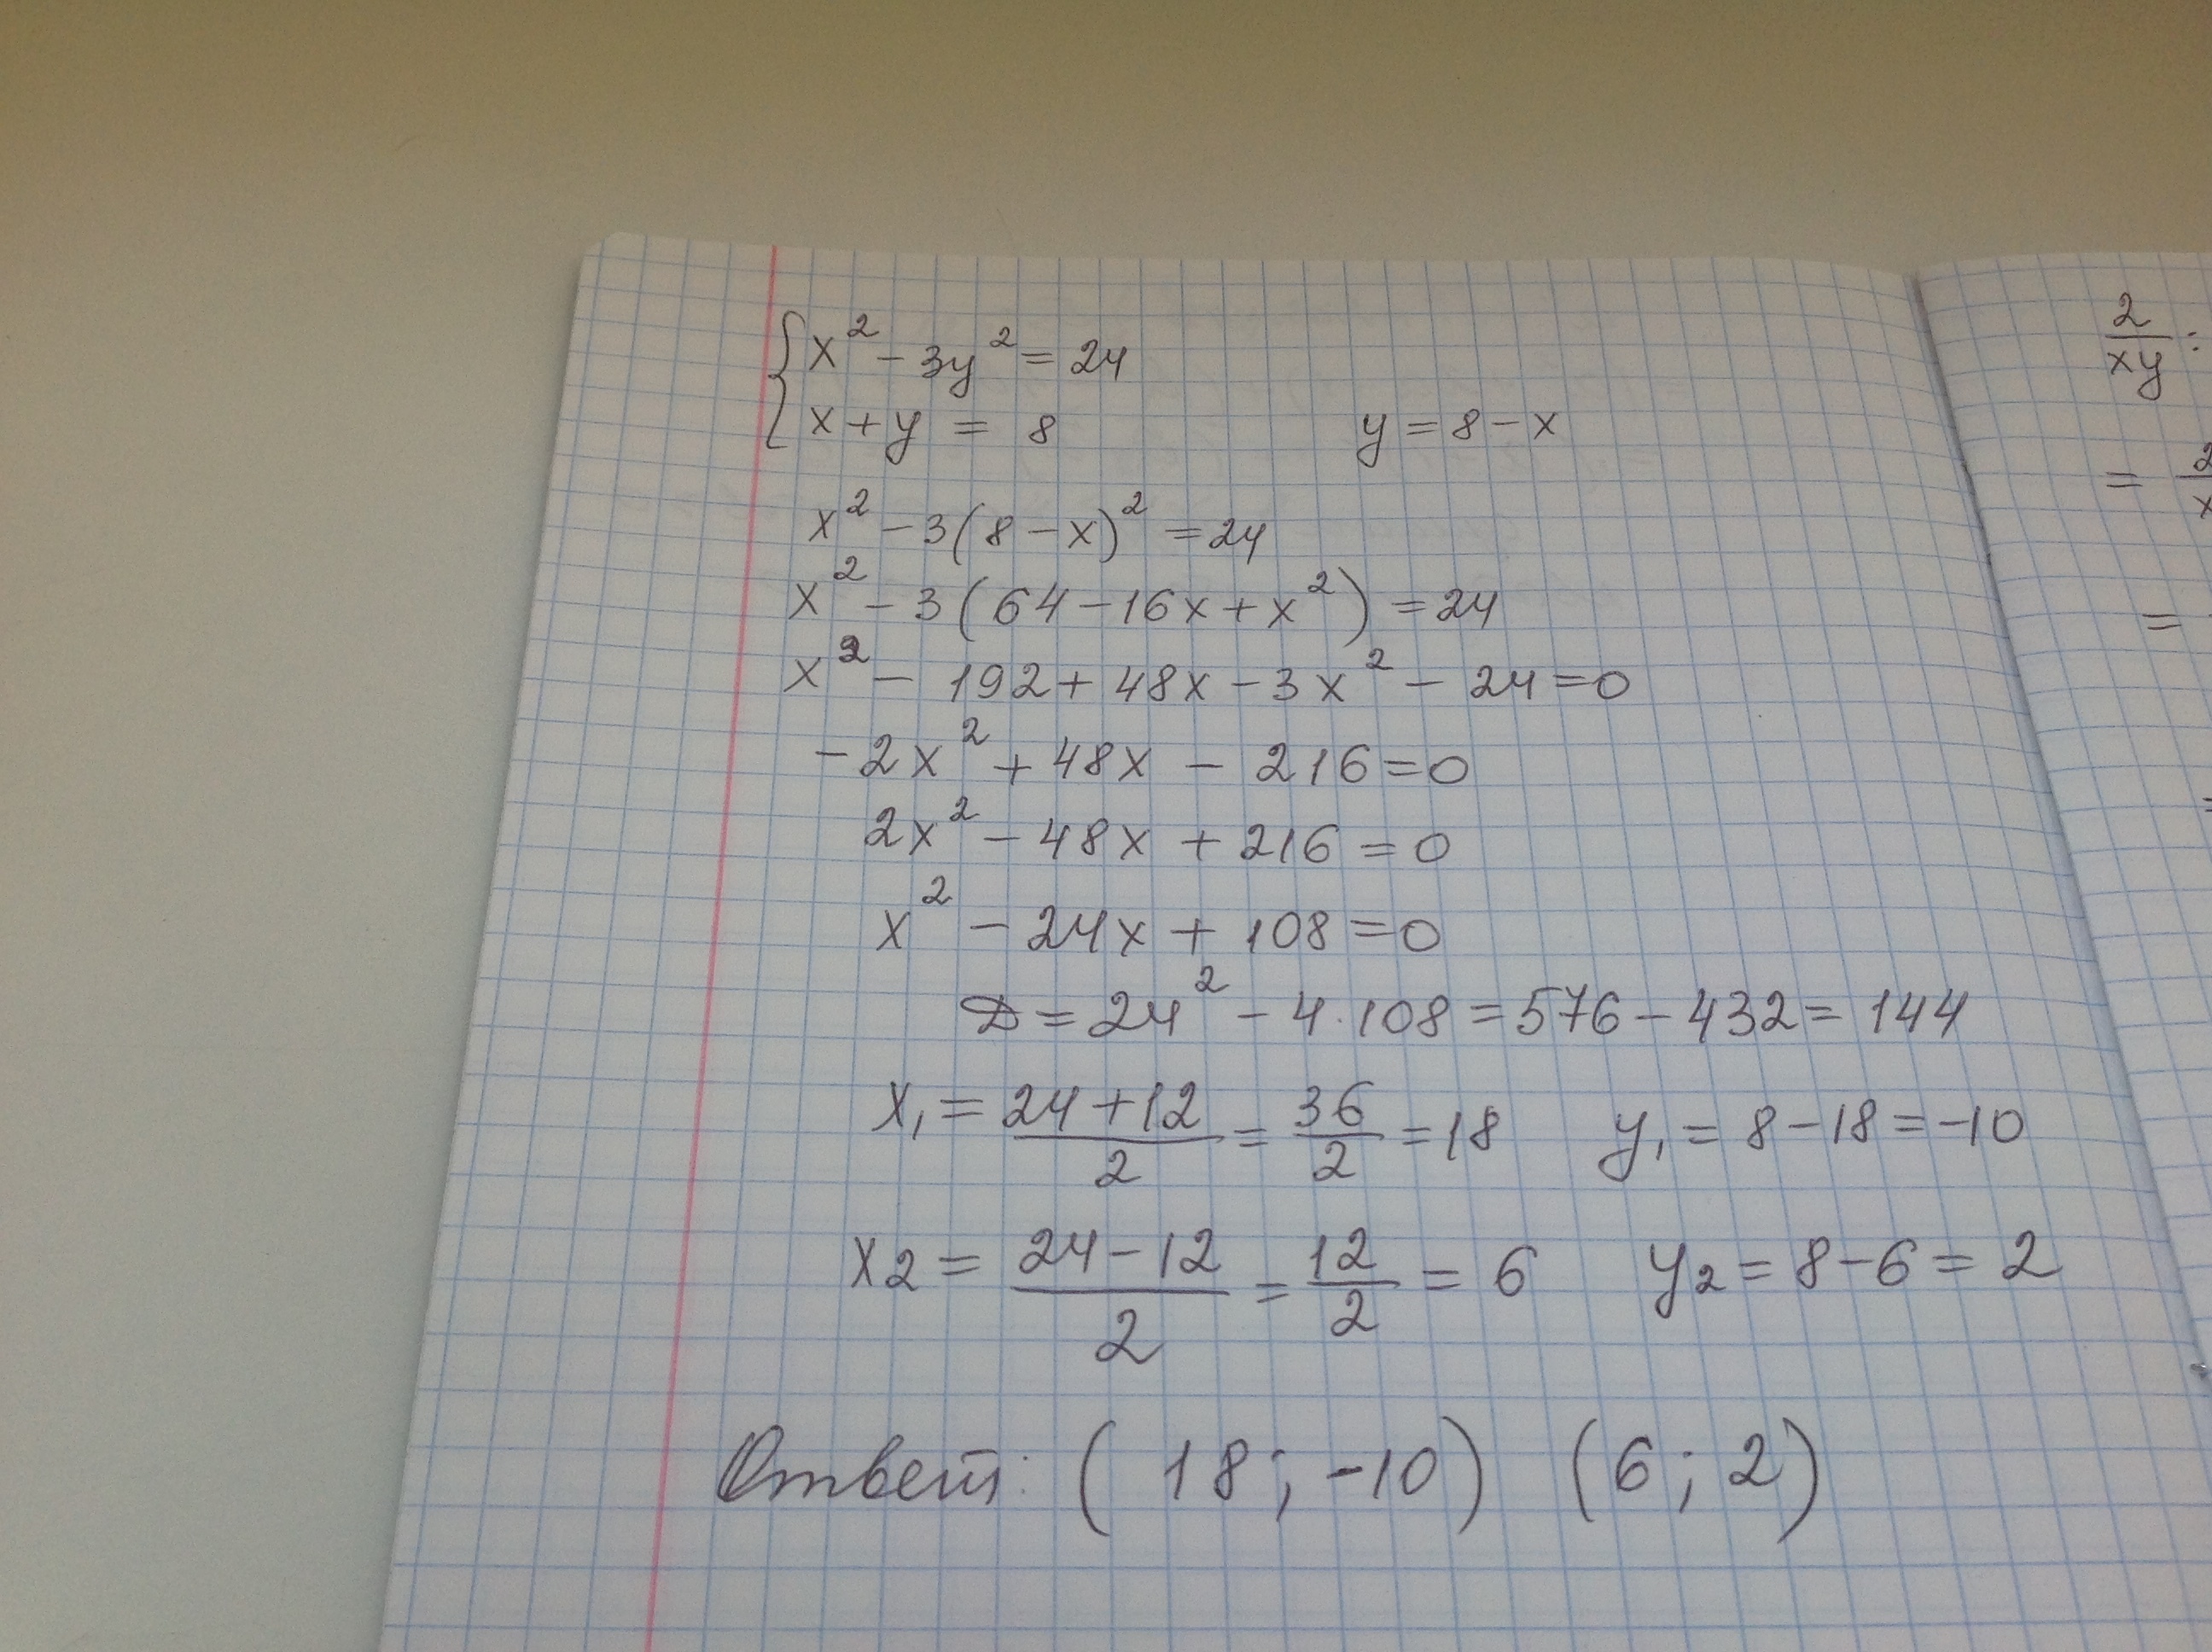 { x² - 3y² = 24
x + y = 8      y = 8 - x
x² - 3(8 - x)² = 24
x² - 3(64 - 16x + x²) = 24
x² - 192 + 48x - 3x² - 24 = 0
-2x² + 48x - 216 = 0
2x² - 48x + 216 = 0
x² - 24x + 108 = 0
D = 24² - 4·108 = 576 - 432 = 144
x₁ = (24+12)/2 = 36/2 = 18   y₁ = 8 - 18 = -10
x₂ = (24-12)/2 = 12/2 = 6   y₂ = 8 - 6 = 2
Ответ: (18; -10) (6; 2)
2/xy :
=
=